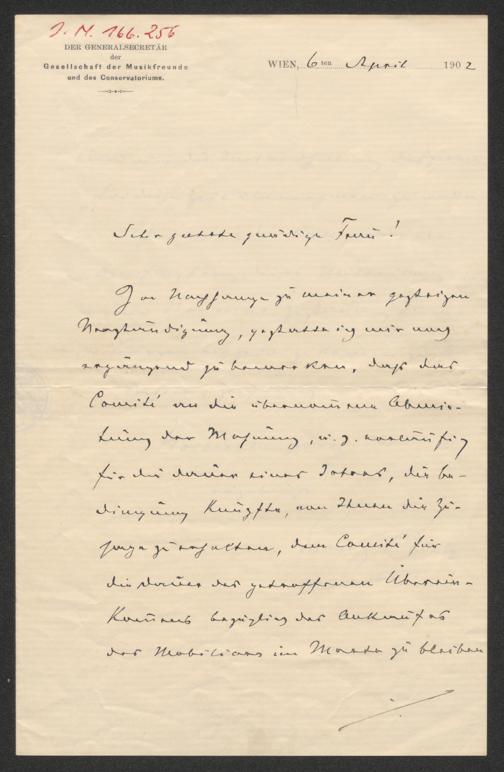 I. N. 166.256
DER GENERALSECRETÄR
der
Gesellschaft der Musikfreunde
und des Conservatoriums.
WIEN, 6 ten April 1902
Sehr geehrte gnädige Frau!
Im Nachhange zu meiner gestrigen
Verständigung, gestatte ich mir noch
ergänzend zu bemerken, daß das
Comité an die übernommene Abmie-
tung der Wohnung, u. z. vorläufig
für die Dauer eines Jahres, die Be-
dingung knüpfte, von Ihnen die Zu-
sage zu erhalten, dem Comité für
die Dauer des getroffenen Überein-
kommens bezüglich des Ankaufes
des Mobiliars im Worte zu bleiben